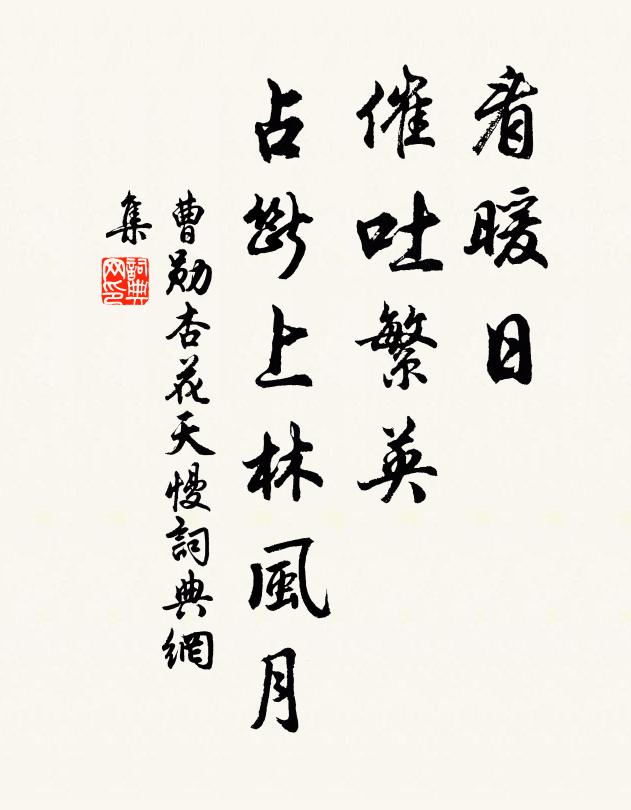 看暖日
催吐繁英
占斷上林風月
曹勛杏花天慢詞典網
集
詞典
网印